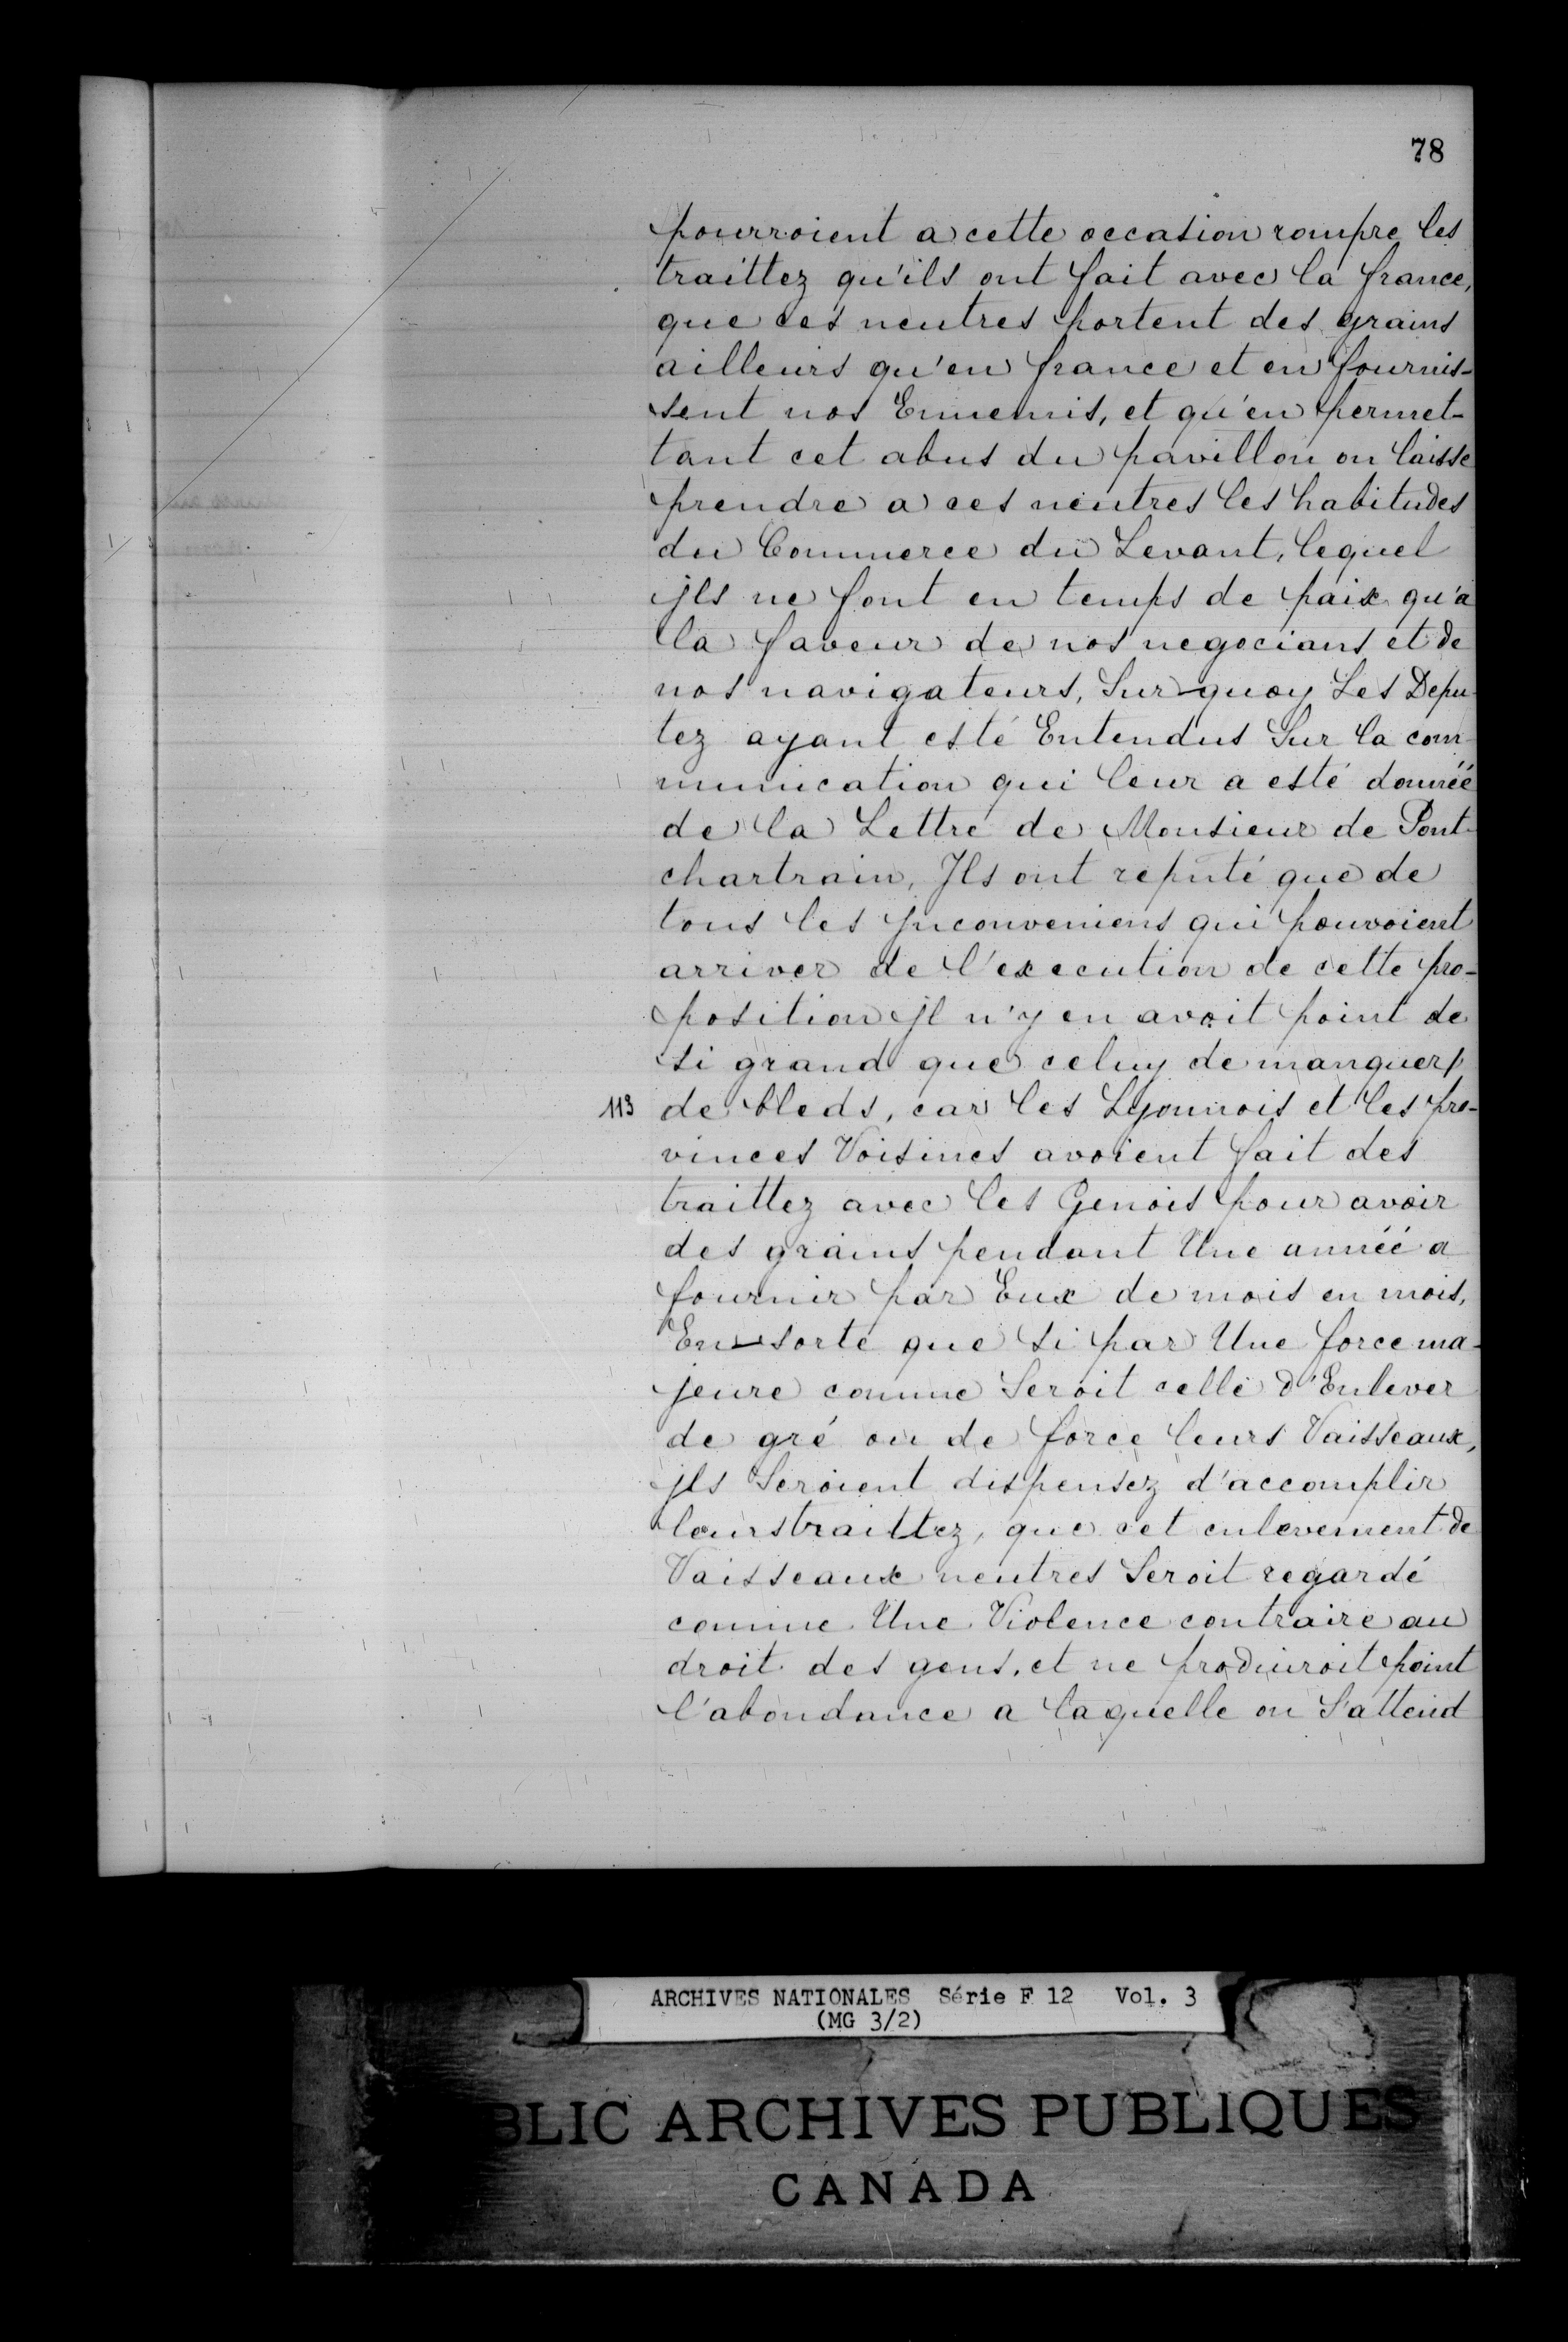 78
pourroient a cette occasion rompre les
traittez qu'ils ont fait avec la france,
que ces neutres portent des grains
ailleurs qu'en france et en fournis-
sent nos Ennemis, et qu'en permet-
tant cet abus du pavillon on laisse
prendre a ces neutres les habitudes
du Commerce du Levant, lequel
jls ne font en temps de paix qu'a
la faveur de nos negocians et de
nos navigateurs, Sur-quoy Les Depu-
tez ayant esté Entendus Sur la com-
munication qui leur a esté donnéé
de la Lettre de Monsieur de Pont-
chartrain, Jls ont reputé que de
tous les jnconveniens qui pouvoient
arriver de l'execution de cette pro-
position jl n'y en avoit point de
si grand que celuy de manquer/
113 de bleds, car les Lyonnois et les pro-
vinces Voisines avoient fait des
traittez avec les Genois pour avoir
des grains pendant Une annéé a
fournir par Eux de mois en mois,
En-sorte que si par Une force ma-
jeure comme Seroit celle d'Enlever
de gré ou de force leurs Vaisseaux,
jls Seroient dispensez d'accomplir
leurs traittez, que cet enlevement de
Vaisseaux neutres Seroit regardé
comme Une Violence contraire au
droit des gens, et ne produiroit point
l'abondance a laquelle on S'attend
ARCHIVES NATIONALES Série F 12 Vol. 3
(MG 3/2)
BLIC ARCHIVES PUBLIQUES
CANADA